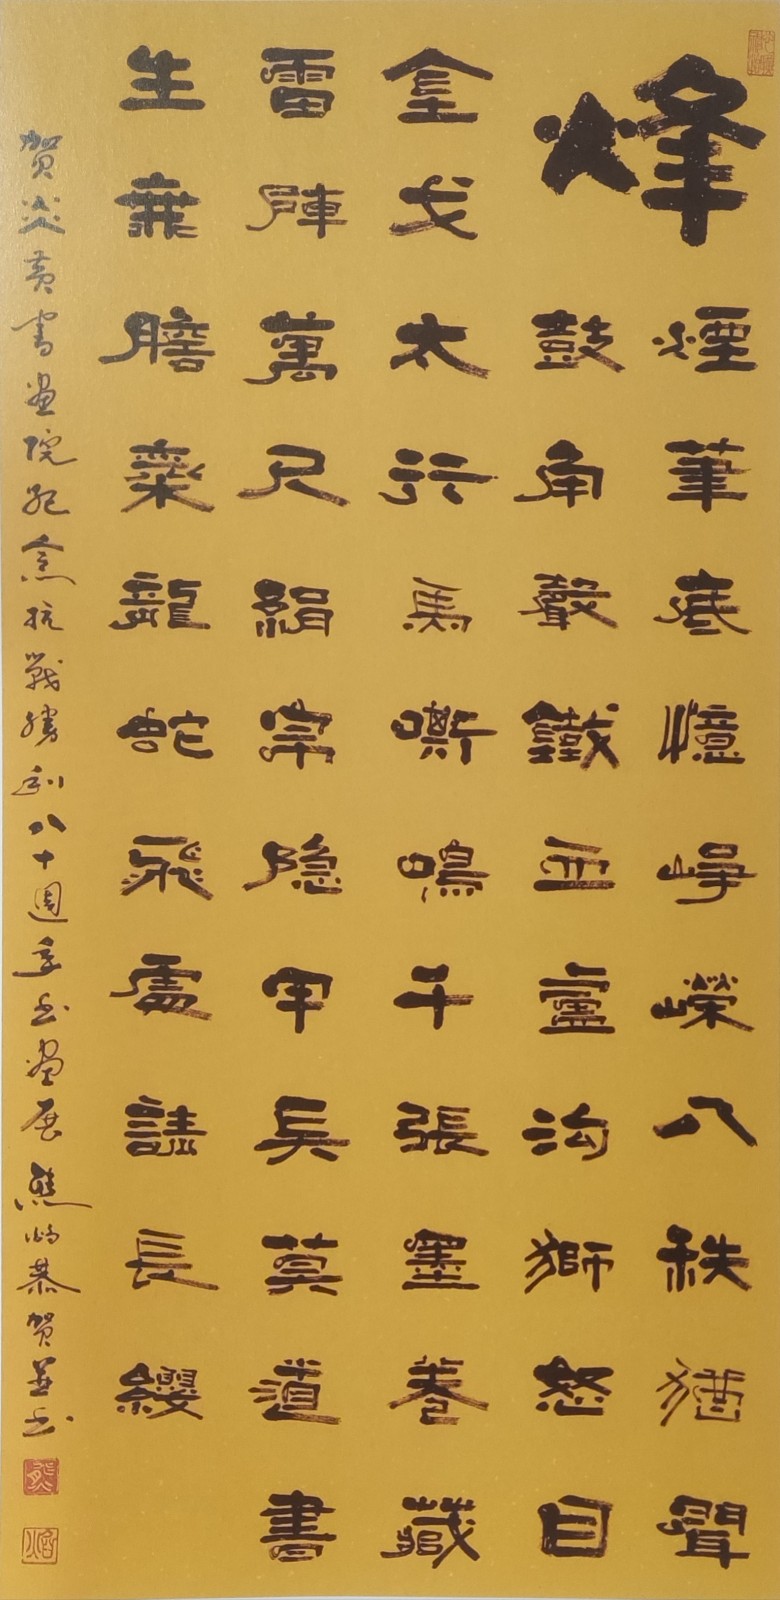 烽煙筆底憶崢嶸八秩猶聞
鼓角聲鐵血盧沟獅怒目
金戈太行馬嘶鳴千張墨卷藏
雷陣萬尺絹帛隐甲兵莫道書
生無膽氣龍蛇飛處請長纓
贺炎黄書画院纪念抗戰勝利八十週年书画展熊炳恭贺並书